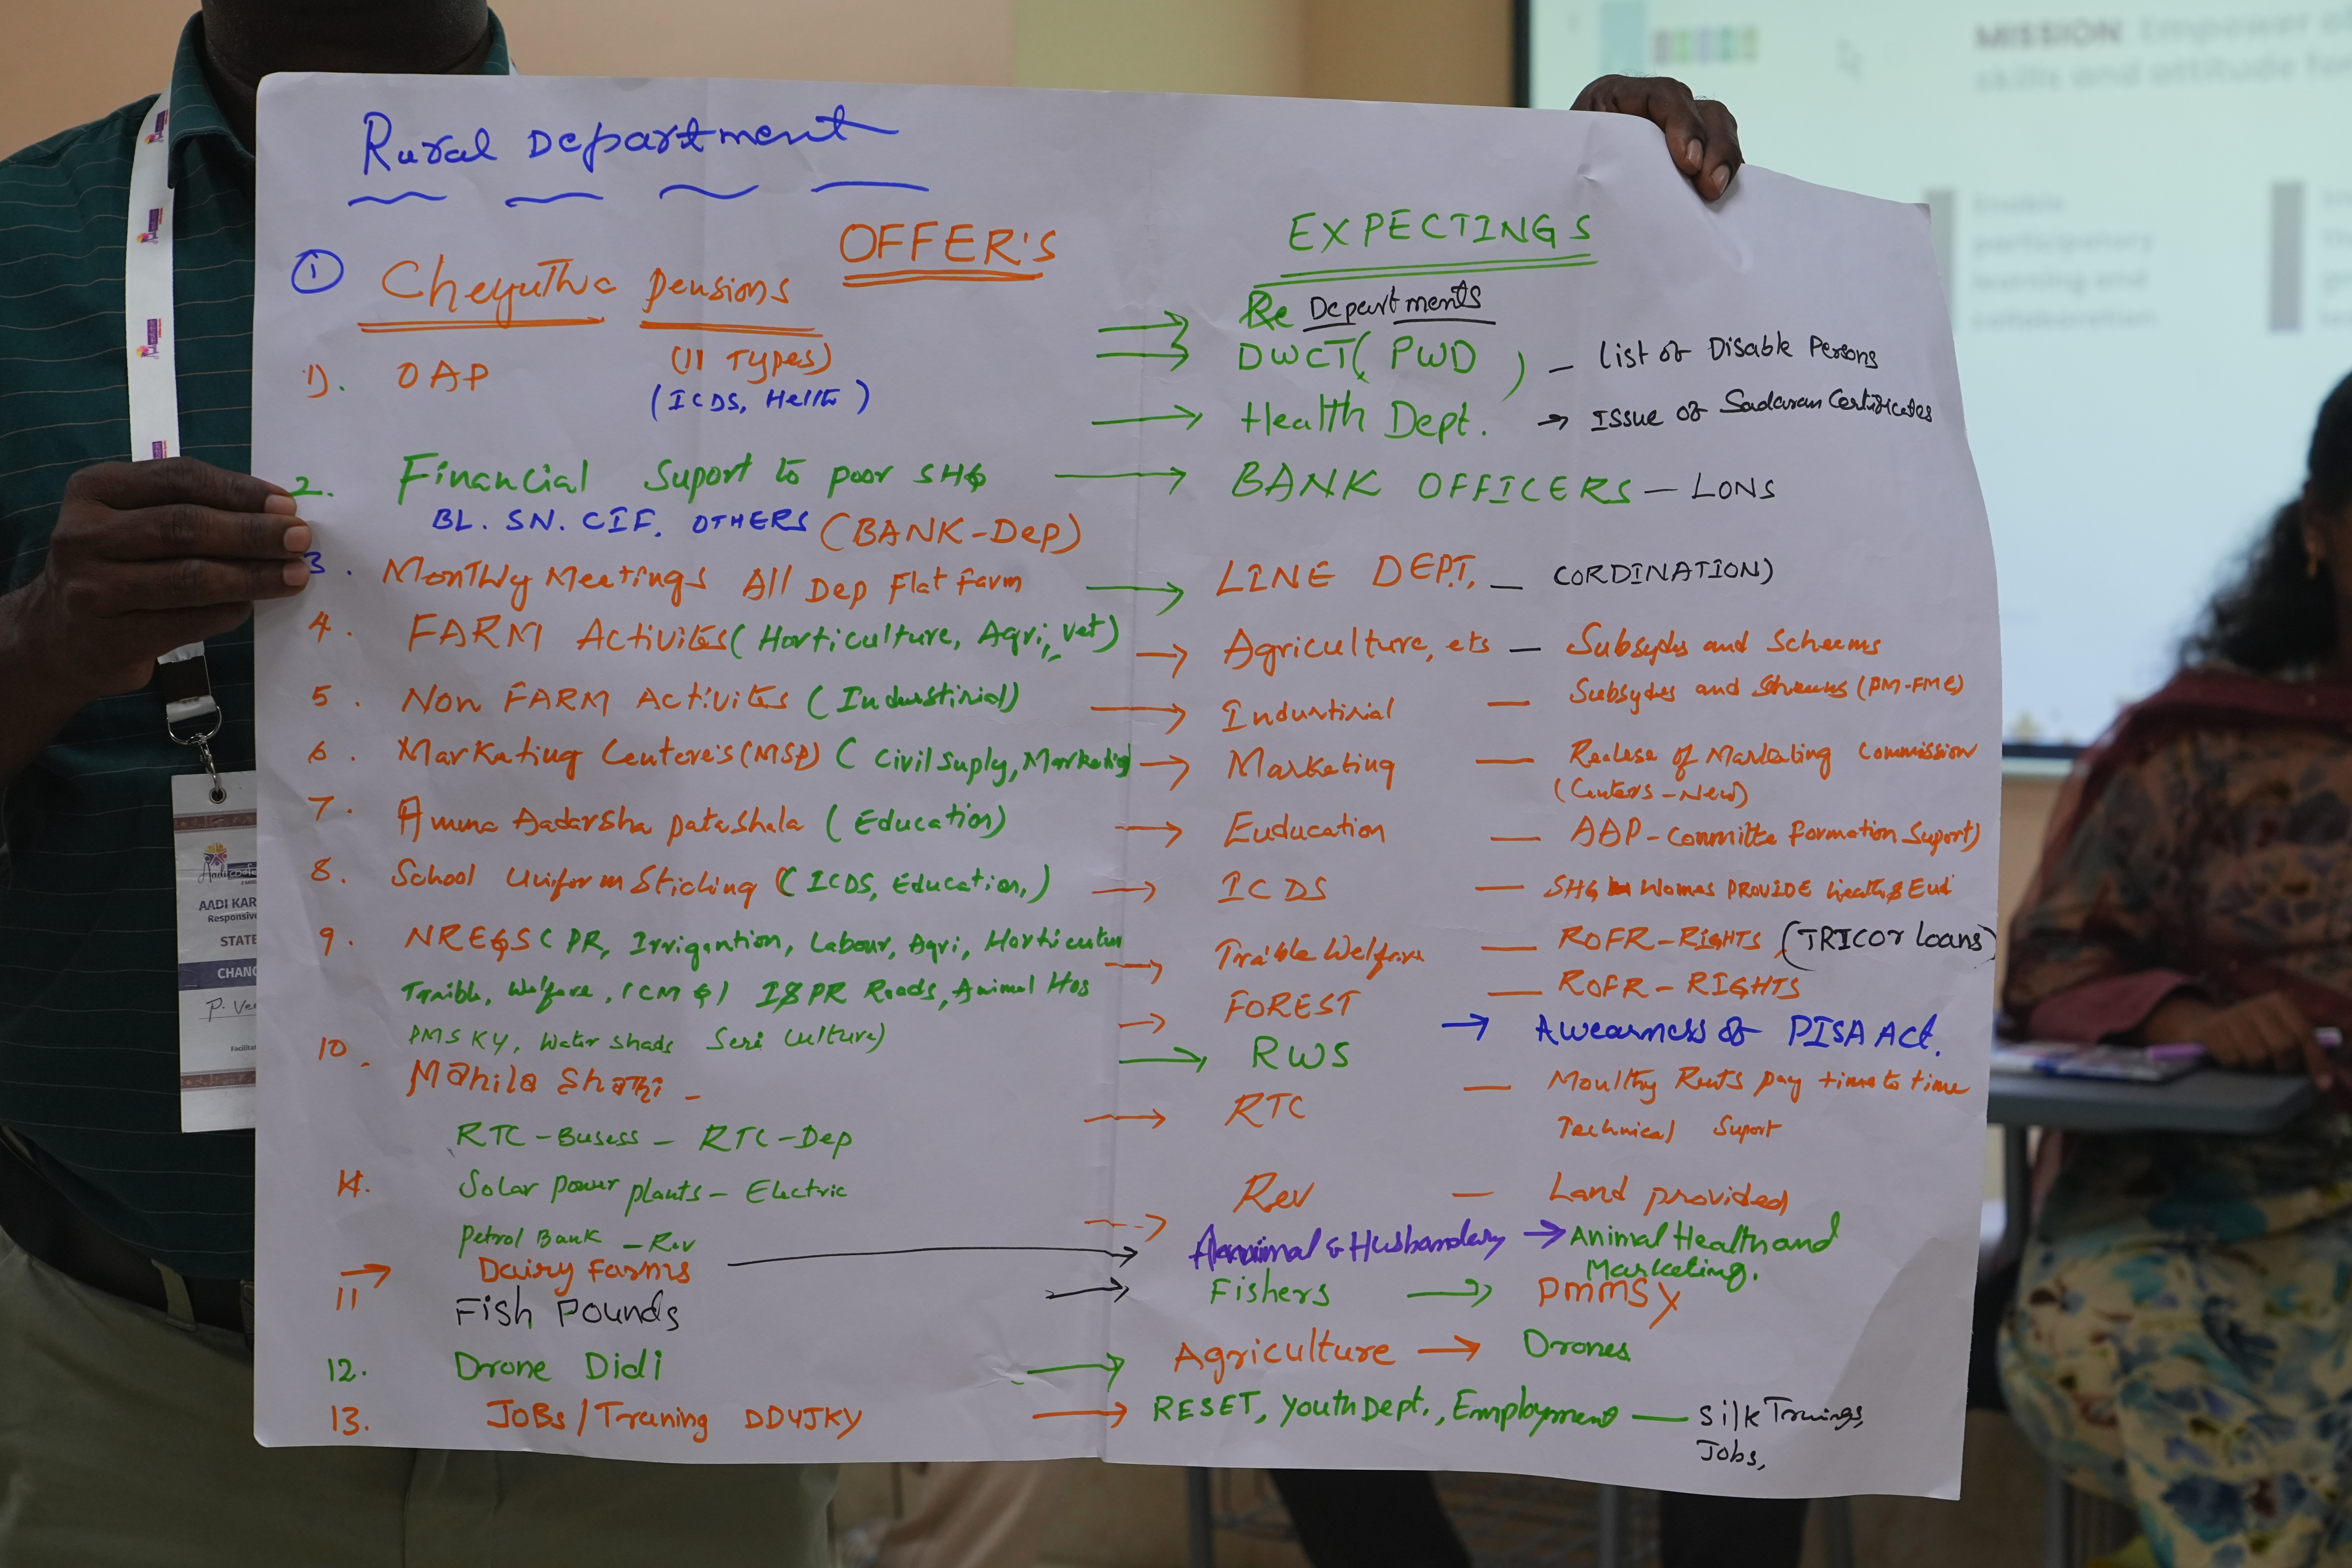 Rural Department
OFFER'S
EXPECTINGS
① Cheyutha Pensions
Departments
1). OAP (11 Types)
(ICDS, Helth)
DWCT( PWD ) – List of Disable Persons
Health Dept. → Issue of Sadaram Certificates
2. Financial Suport to poor SHG → BANK OFFICERS – LONS
BL. SN. CIF. OTHERS (BANK-Dep)
3. Monthly Meetings All Dep Flat Farm → LINE DEPT. – CORDINATION)
4. FARM Activites (Horticulture, Agri, Vet) → Agriculture, ets – Subsydys and Scheems
5. Non FARM Activites (Industirial) → Industirial – Subsydes and Sheems (PM-FME)
6. Marketing Centere's (MSP) (Civil Suply, Marketing → Marketing – Realese of Marketing Commission
(Centers – New)
7. Amma Aadarsha patashala (Education) → Euducation – AAP-Committe formation Suport)
8. School Uniform Stiching (ICDS, Education,) → ICDS – SHG Womas PROVIDE Health & Eud
9. NREGS (PR, Irrigantion, Labour, Agri, Horticultur → Traible Welfare – ROFR-RIGHTS (TRICOR loans)
Traible, Welfare, (CMG) I&PR Roads, Animal Hos
→ FOREST – ROFR-RIGHTS
PMSKY, Water shads Seri Culture)
→ RWS → Awearness of PISA Act.
10. Mahila Shathi –
RTC-Busess – RTC-Dep
→ RTC – Moulthy Rents pay time to time
Technical Suport
Solar power plants – Electric
11.
Petrol Bank – Rev
→ Rev – Land provided
11 → Dairy Farms → Aanimal & Husbandary → Animal Health and
Marketing.
Fish Pounds → Fishers → PMMSY
12. Drone Didi → Agriculture → Drones
13. JOBS/Traning DDUJKY → RESET, Youth Dept., Employment – Silk Trnings,
Jobs,
MISSION: Empower
skills and attitude for
Enable
participatory
learning and
collaboration
AADI KAR
Responsive
STATE
CHANG
P. Ve
Facilitat